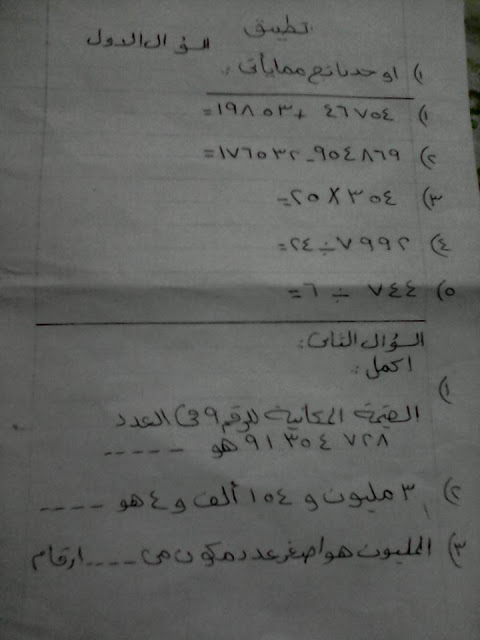 تطبيق
السؤال الاول
١) اوجد ناتج ممايأتى :
١) ٤٦٧٥٤ + ١٩٨٥٣=
٢) ٩٥٤٨٦٩ - ١٧٦٥٣٢=
٣) ٣٠٤ × ٢٥=
٤) ٧٩٩٢ ÷ ٢٤=
٥) ٧٤٤ ÷ ٦=
السؤال الثانى :
اكمل :
١)
القيمة المكانية للرقم ٩ فى العدد
٩١٣٥٤٧٢٨ هو -----
٢) ٣ مليون و ١٥٤ ألف و ٤ هو ----
٣) المليون هو اصغر عدد مكون من ---- ارقام